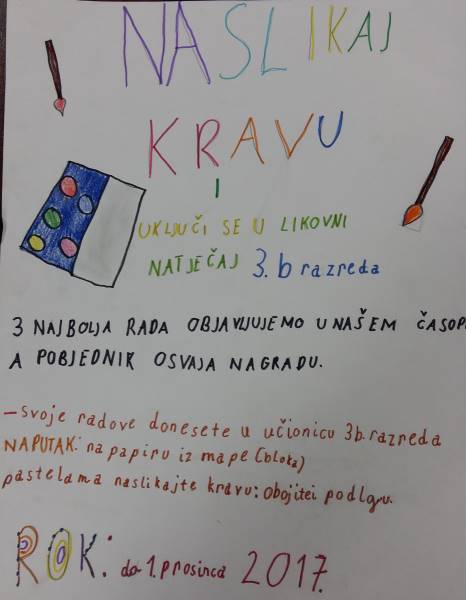 NASLIKAJ
KRAVU
I
UKLJUČI SE U LIKOVNI
NATJEČAJ 3.b razreda
3 NAJBOLJA RADA OBJAVLJUJEMO U NAŠEM ČASOP
A POBJEDNIK OSVAJA NAGRADU.
– svoje radove donesete u učionicu 3b.razreda
NAPUTAK: na papiru iz mape (bloka)
pastelama naslikajte kravu: obojitei podlgru.
ROK: do 1. prosinca 2017.